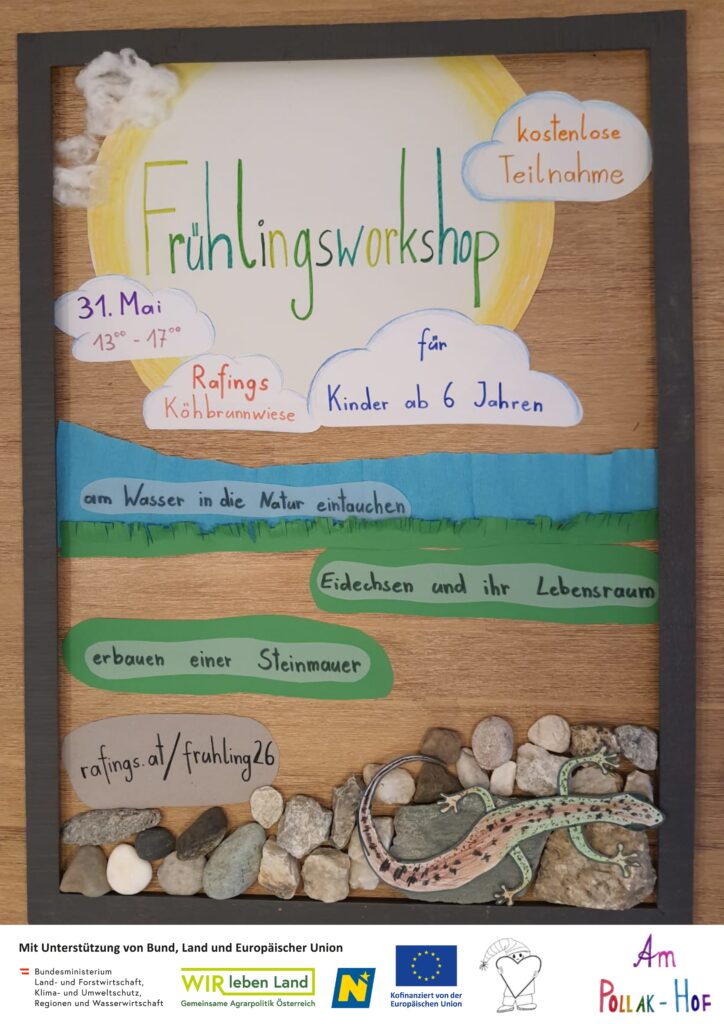 Frühlingsworkshop
kostenlose
Teilnahme
31. Mai
13⁰⁰ - 17⁰⁰
Rafings
Köhbrunnwiese
für
Kinder ab 6 Jahren
am Wasser in die Natur eintauchen
Eidechsen und ihr Lebensraum
erbauen einer Steinmauer
rafings.at/fruhling26
Mit Unterstützung von Bund, Land und Europäischer Union
Bundesministerium
Land- und Forstwirtschaft,
Klima- und Umweltschutz,
Regionen und Wasserwirtschaft
WIR leben Land
Gemeinsame Agrarpolitik Österreich
N
Kofinanziert von der
Europäischen Union
Am
POLLAK-HOF